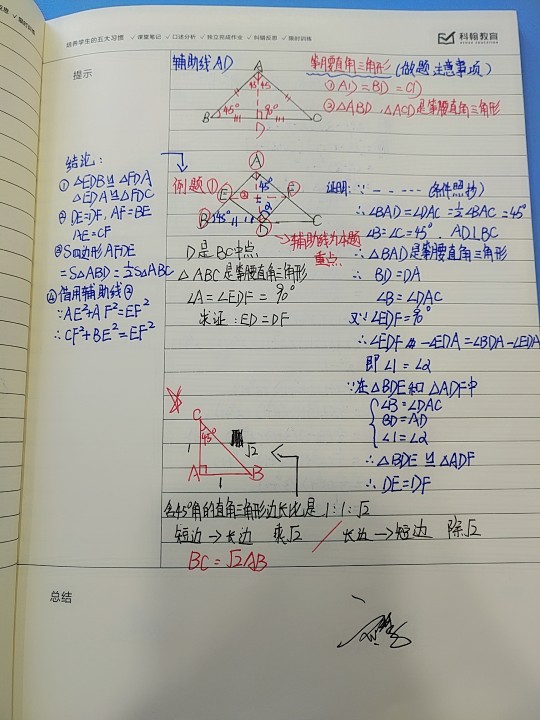 培养学生的五大习惯 ✓课堂笔记 ✓口述分析 ✓独立完成作业 ✓纠错反思 ✓限时训练
科翰教育
提示
辅助线AD
等腰直角三角形(做题注意事项)
①AD=BD=CD
②△ABD、△ACD是等腰直角三角形
A
45 45
B 45° D 90° C
结论:
①△EDB≌△FDA
△EDA≌△FDC
②DE=DF, AF=BE
AE=CF
③S四边形AFDE
=S△ABD=½S△ABC
④借用辅助线③
∵AE²+AF²=EF²
∴CF²+BE²=EF²
例题①
A
45°
E F
B 45° 1 2 D C
→辅助线为本题
重点
D是BC中点
△ABC是等腰直角三角形
∠A=∠EDF=90°
求证:ED=DF
证明:∵－－－－－(条件照抄)
∴∠BAD=∠DAC=½∠BAC=45°
∠B=∠C=45°.AD⊥BC
∴△BAD是等腰直角三角形
∴BD=DA
∠B=∠DAC
又∵∠EDF=90°
∴∠EDF-∠EDA=∠BDA-∠EDA
即∠1=∠2
∵在△BDE和△ADF中
∠B=∠DAC
BD=AD
∠1=∠2
∴△BDE≌△ADF
∴DE=DF
C
45°
1 √2
A B
1
含45°角的直角三角形边长比是1:1:√2
短边→长边 乘√2 / 长边→短边 除√2
BC=√2AB
总结